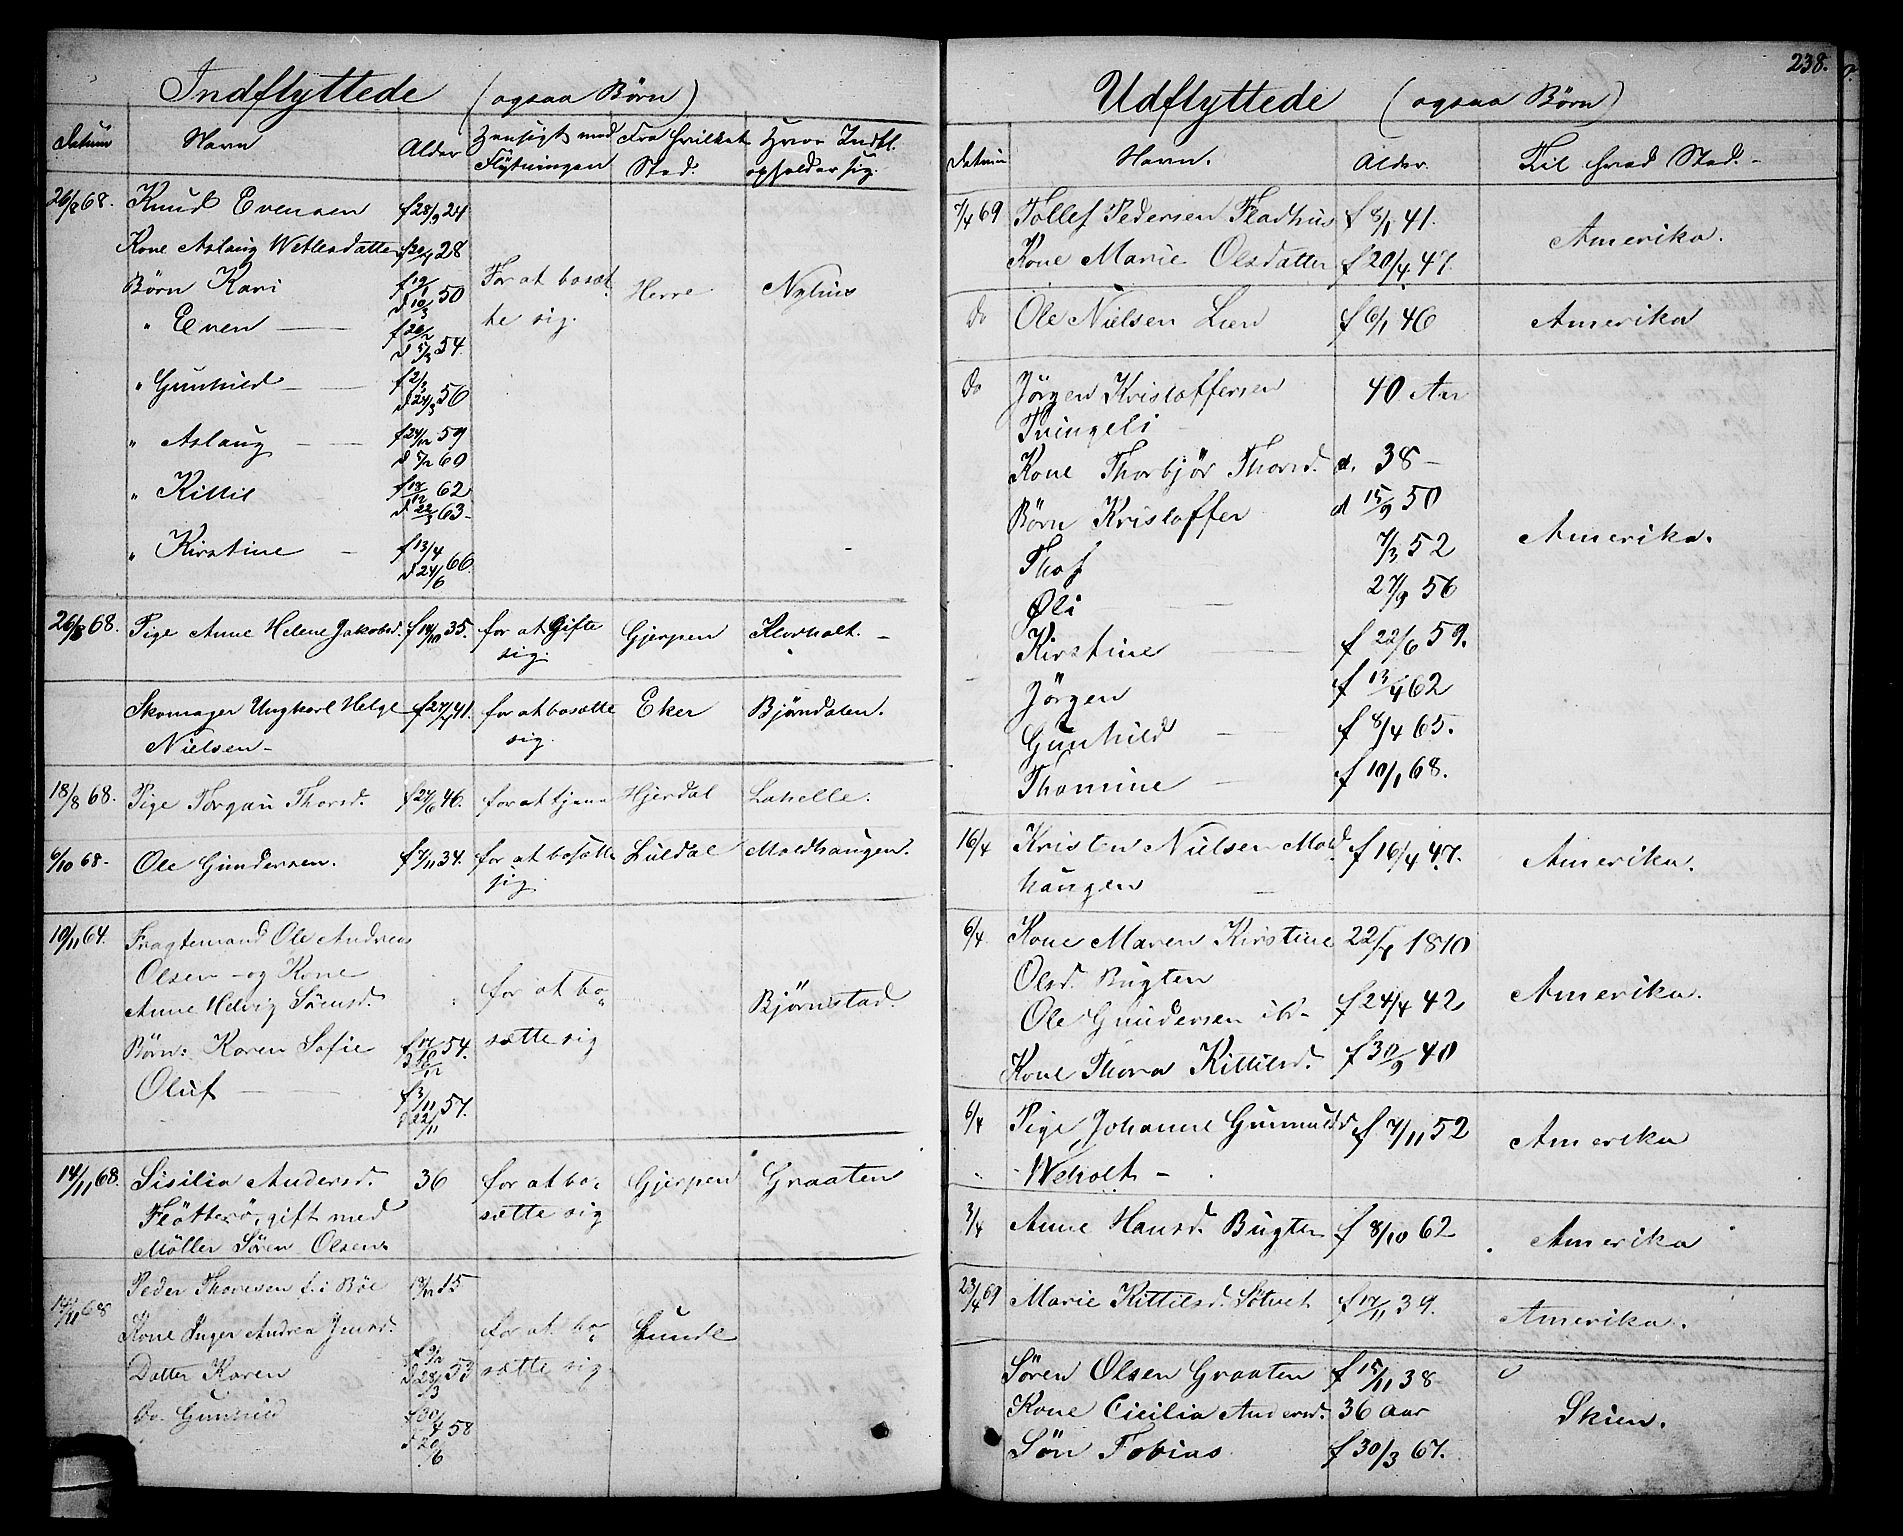 Indflyttede (ogsaa Børn)
Datum Navn Alder Hensigt med Flytningen Fra hvilket Sted. Hvor Indfl. opholder sig.
26/8 68. Knud Evensen f 28/9 24
Kone Aslaug Wetlesdatter 28
Børn Kari 50 For at bosæt- Herre Nyhus
" Even 54. te sig.
" Gunhild f 2/3 d 24/3 56
" Aslaug f 24/12 59
60
" Kittil f 18/12 62
d 22/3 63
" Kirstine f 13/4
d 24/6 66.
26/8 68. Pige Anne Helene Jakobsd. 35. for at Gifte Gjerpen Klovholt.
sig.
Skomager Ungkarl Helge 41. for at bosætte Eker Bjørndalen.
Nielsen sig.
18/8 68. Pige Torgan Thorsd. f 27/6 46. for at tjene Hjerdal Lahelle.
6/10 68. Ole Gundersen. f 7/11 34. for at bosætte Luldal Moldhaugen.
sig.
10/11 64. Fragtemand Ole Andreas
Olsen og Kone for at bo-
Anne Helvig Sörensd. Bjørnstad.
Børn: Karen Sofie 54. sætte sig
Oluf f 3/11 57.
d 22/11
14/11 68. Sisilia Andersd. 36 for at bo- Gjerpen Graaten
Flötterö, gift med sætte sig
Møller Sören Olsen.
14/11 68 Peder Thoresen f. i Böe 15
Kone Inger Andrea Jensd. for at bo- Lunde
Datter Karen d 28/3 53 sætte sig
Do. Gunhild 58
238.
Udflyttede (ogsaa Børn)
Datum Navn. Alder. Til hvad Sted.
7/4 69 Tollef Pedersen Fladhus f 3/1 41.
Kone Marie Olsdatter f 20/4 47. Amerika.
Do Ole Nielsen Lien f 6/1 46 Amerika
Do Jörgen Kristoffersen 40 Aar
Tvingeli
Kone Thorbjör Thorsd. d. 38
Börn Kristoffer d 15/9 50 Amerika.
Thof 7/3 52
Oli 27/9 56
Kirstine f 22/6 59.
Jörgen f 13/4 62
Gunhild f 8/4 65.
Thomine f 10/1 68.
16/4 Kristen Nielsen Mold f 16/4 47. Amerika.
haugen
6/4. Kone Maren Kirstine 1810
Olsd. Bugten Amerika.
Ole Gundersen ib. f 24/4 42
Kone Thora Kittilsd. f 30/9 40
6/4 Pige Johanne Gunnulds f 7/11 52 Amerika
Weholt
3/4 Anne Hansd. Bugten f 8/10 62 Amerika
23/4 69 Marie Kittilsd. Sötvet f 17/11 39. Amerika.
Sören Olsen Graaten f 15/11 38
Kone Cicilia Andersd. 36 Aar Skien.
Sön Tobias f 30/3 67.